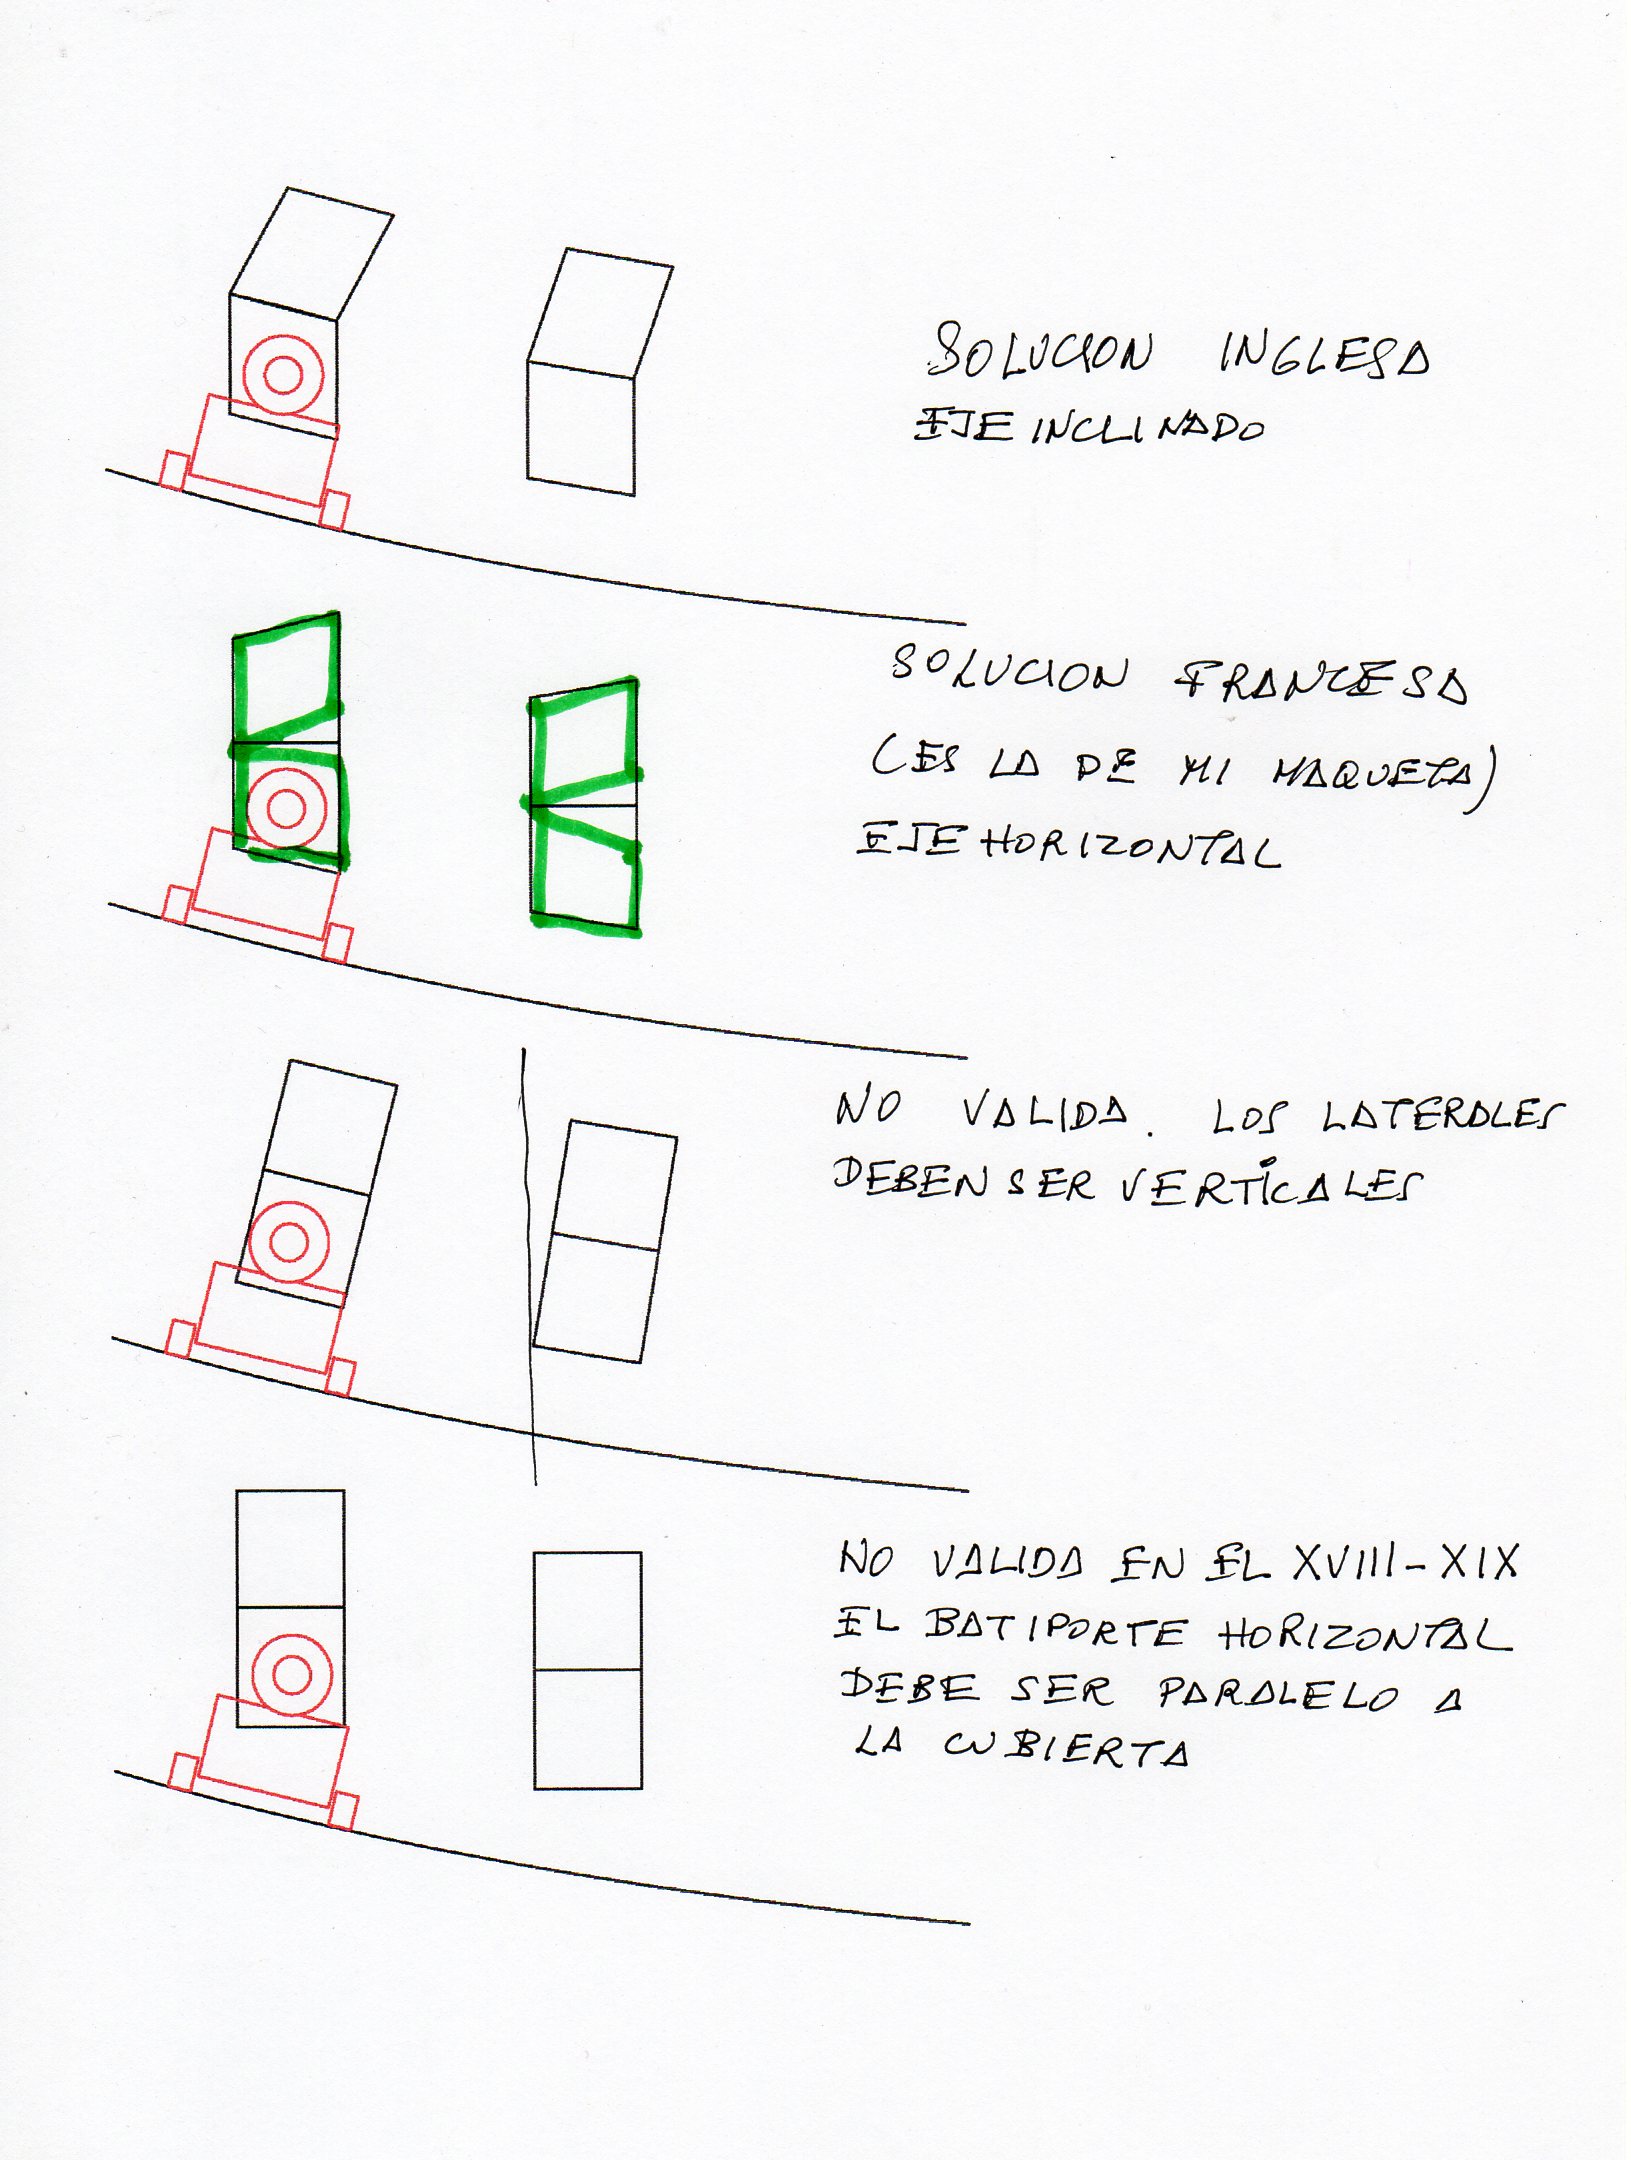 SOLUCION INGLESA
EJE INCLINADO
SOLUCION FRANCESA
(ES LA DE MI MAQUETA)
EJE HORIZONTAL
NO VALIDA. LOS LATERALES
DEBEN SER VERTICALES
NO VALIDA EN EL XVIII-XIX
EL BATIPORTE HORIZONTAL
DEBE SER PARALELO A
LA CUBIERTA